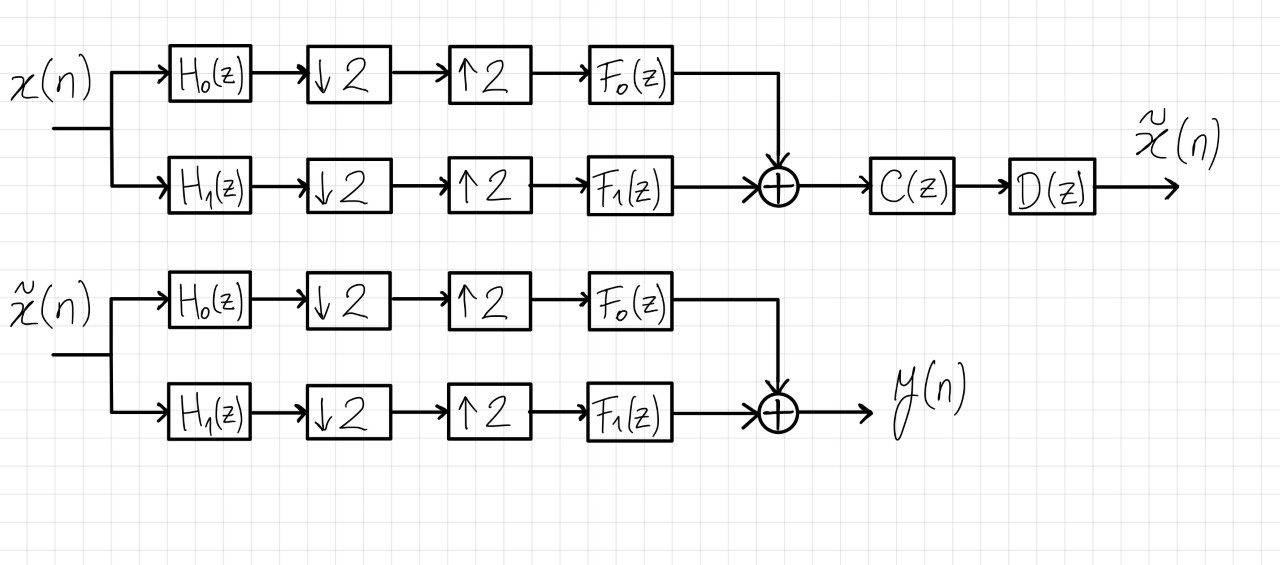 x(n) H₀(z) ↓2 ↑2 F₀(z)
H₁(z) ↓2 ↑2 F₁(z) + C(z) D(z) x̃(n)
x̃(n) H₀(z) ↓2 ↑2 F₀(z)
H₁(z) ↓2 ↑2 F₁(z) + y(n)